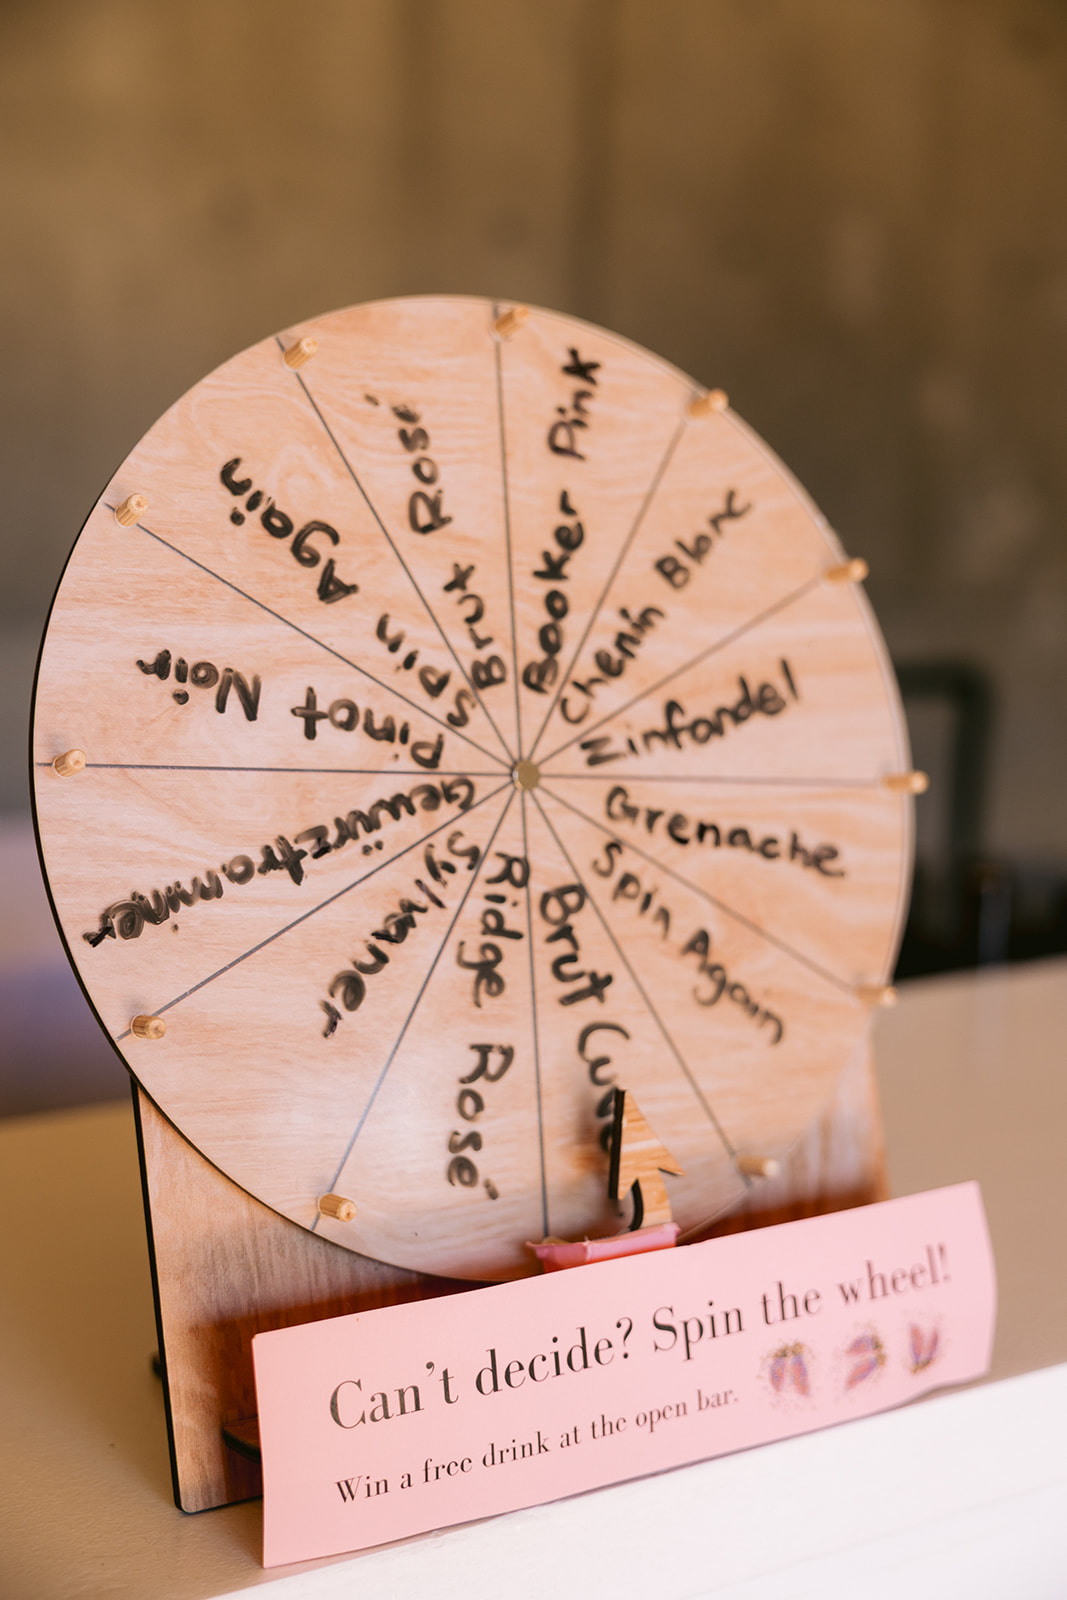 Booker Pink
Chenin Blanc
Zinfandel
Grenache
Spin Again
Brut
Ridge Rosé
Sylvaner
Gewürztraminer
Pinot Noir
Spin Again
Brut Rosé
Can't decide? Spin the wheel!
Win a free drink at the open bar.